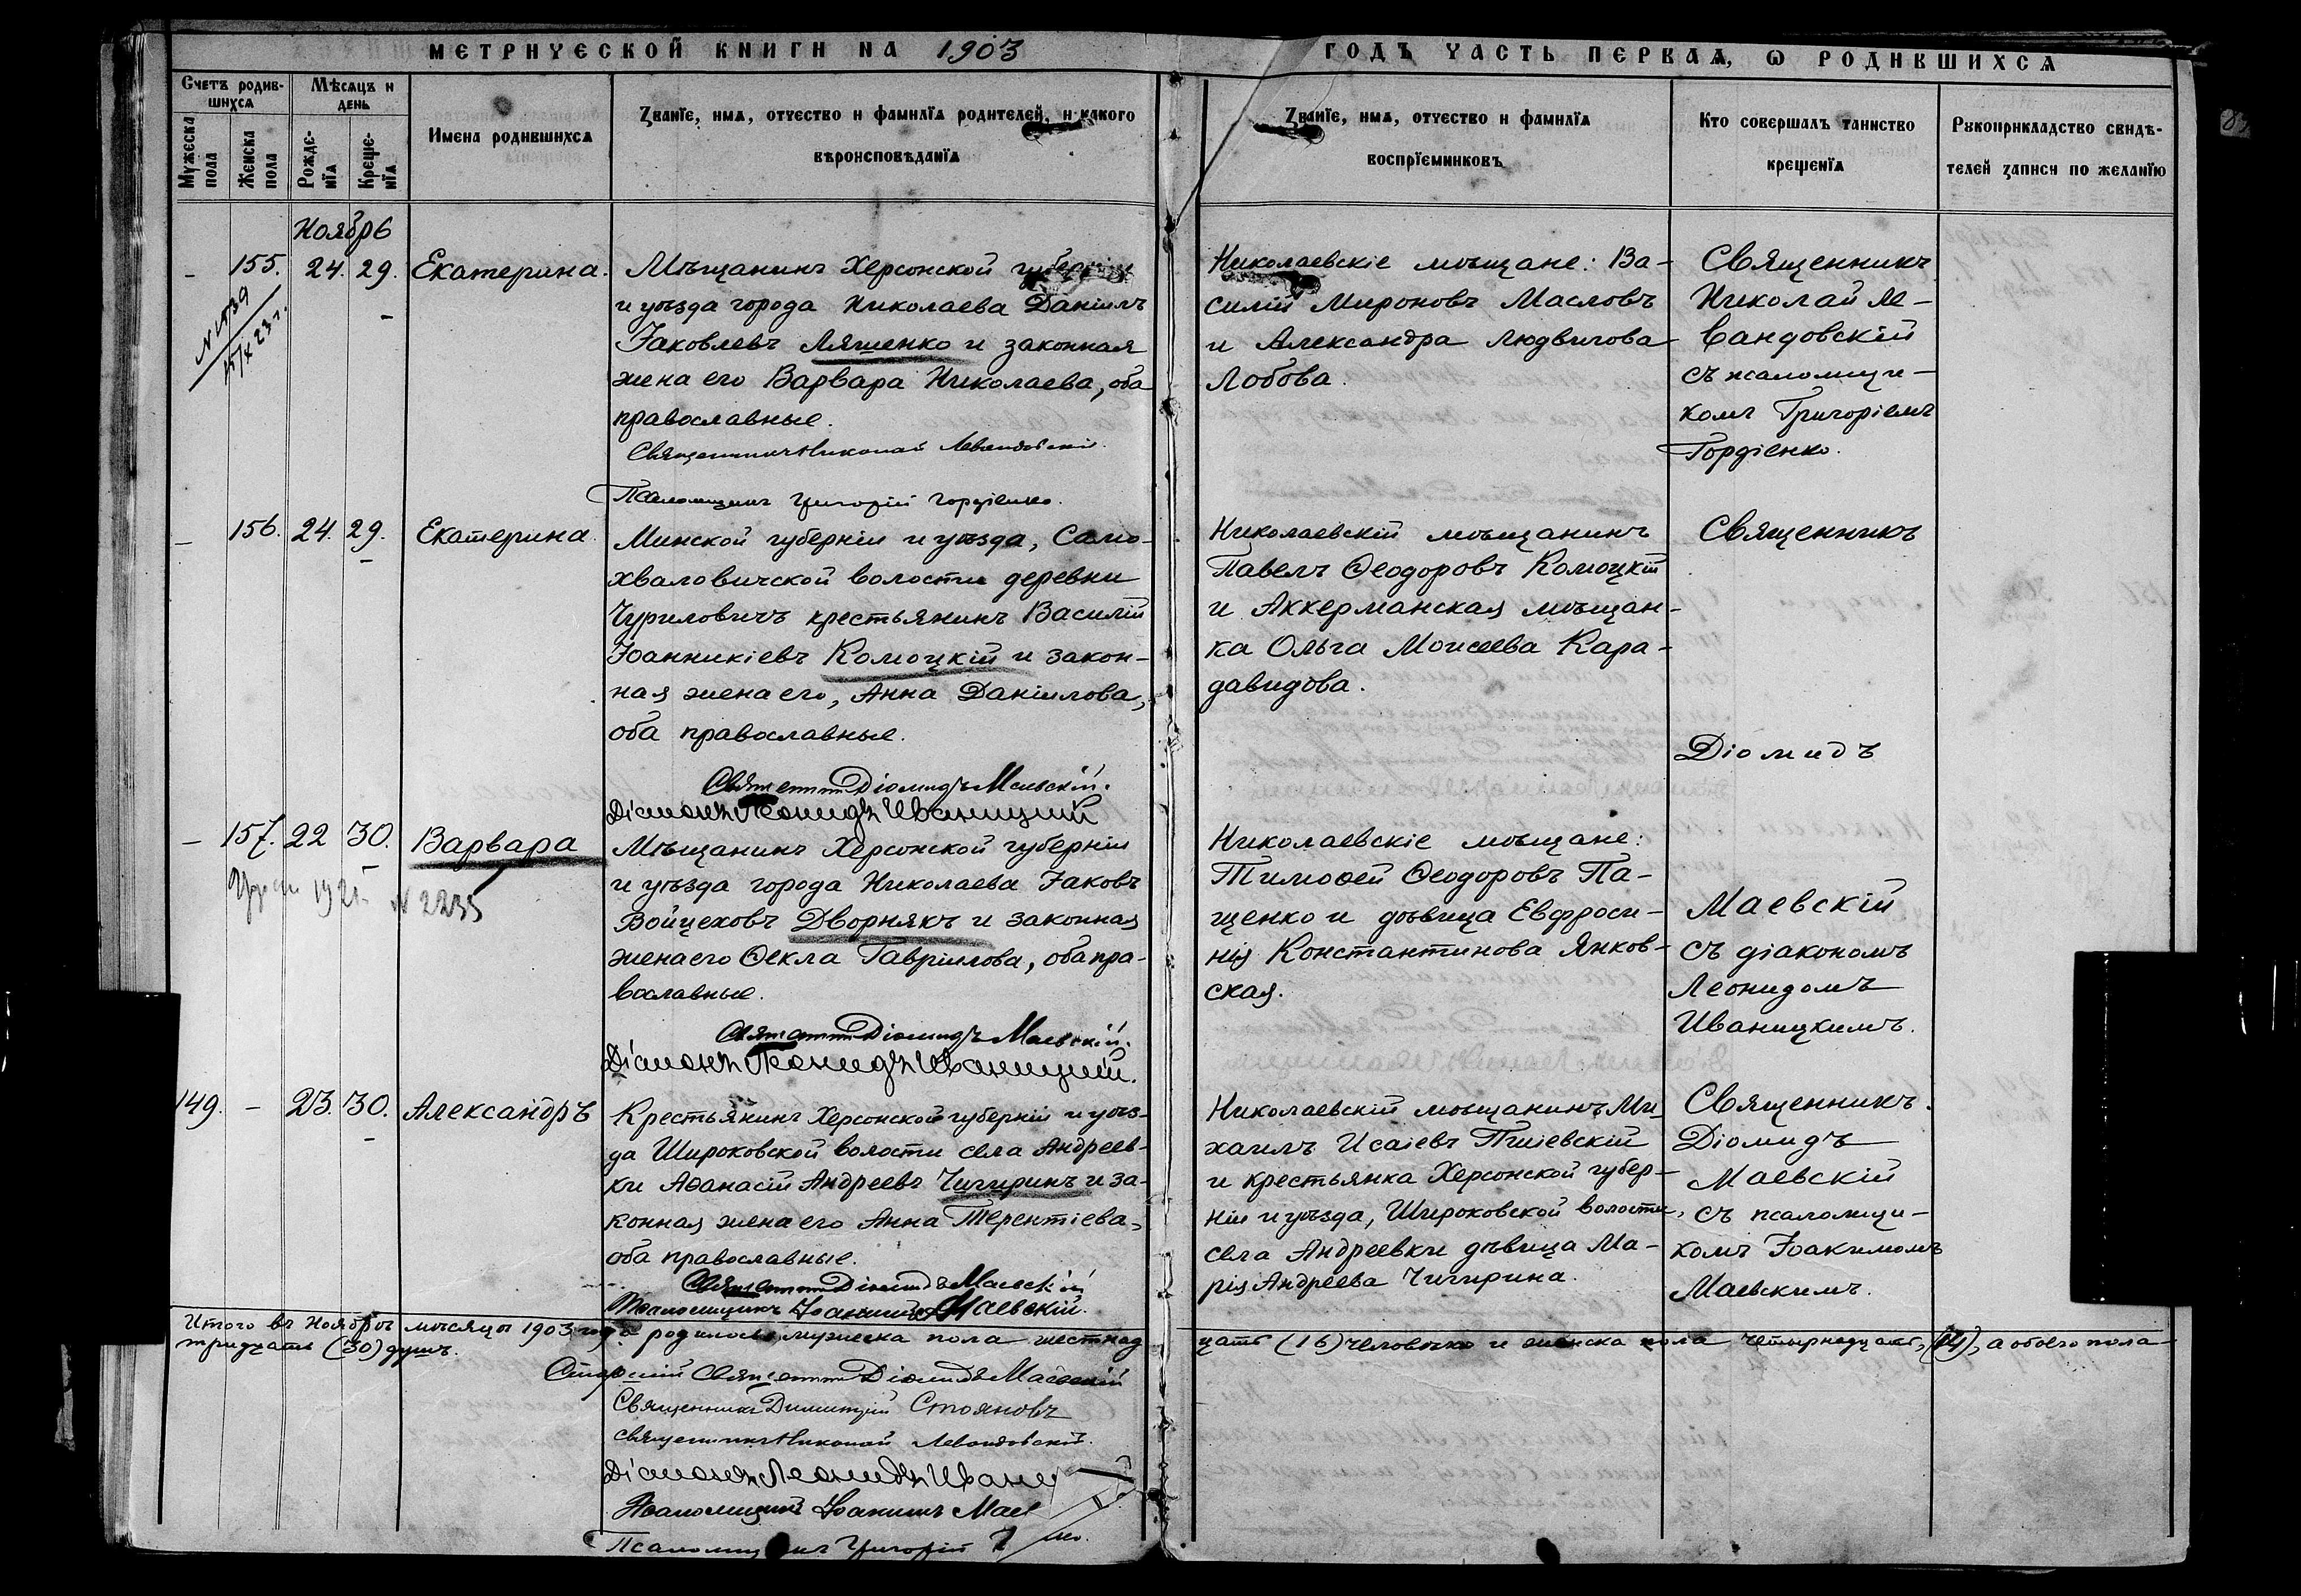 МЕТРИЧЕСКОЙ КНИГИ НА 1903
ГОДЪ ЧАСТЬ ПЕРВАЯ, Ѡ РОДИВШИХСЯ
Счетъ родив-
шихся
Мѣсяцъ и
день
Мужеска
пола
Женска
пола
Рожде-
нїя
Креще-
нїя
Имена родившихся
Званїе, имя, отчество и фамилїя родителей, и какого
вѣроисповѣданїя
Званїе, имя, отчество и фамилїя
воспрїемниковъ
Кто совершалъ таинство
крещенїя
Рукоприкладство свидѣ-
телей записи по желанїю
Ноябрь
– 155. 24. 29. Екатерина.
Мѣщанинъ Херсонской губерніи
и уѣзда города Николаева Даніилъ
Іаковлевъ Ляшенко и законная
жена его Варвара Николаева, оба
православные.
Священникъ Николай Левандовскій.
Псаломщикъ Григорій Гордіенко.
Николаевскіе мѣщане: Ва-
силій Мироновъ Масловъ
и Александра Людвигова
Лобова.
Священникъ
Николай Ле-
вандовскій
съ псаломщи-
комъ Григоріемъ
Гордіенко.
– 156. 24. 29. Екатерина.
Минской губерніи и уѣзда, Само-
хваловичской волости деревни
Чуриловичъ крестьянинъ Василій
Іоанникіевъ Комоцкій и закон-
ная жена его, Анна Даніилова,
оба православные.
Священникъ Діомидъ Маевскій.
Діаконъ Леонидъ Иваницкій
Николаевскій мѣщанинъ
Павелъ Ѳеодоровъ Комоцкій
и Аккерманская мѣщан-
ка Ольга Моисеева Кара-
давидова.
Священникъ
Діомидъ
– 157. 22 30. Варвара
1925 N 2235
Мѣщанинъ Херсонской губерніи
и уѣзда города Николаева Іаковъ
Войцеховъ Дворнякъ и законная
жена его Ѳекла Гавріилова, оба пра-
вославные.
Священникъ Діомидъ Маевскій.
Діаконъ Леонидъ Иваницкій.
Николаевскіе мѣщане:
Тимоѳей Ѳеодоровъ Па-
щенко и дѣвица Евфроси-
нія Константинова Янков-
ская.
Маевскій
съ діакономъ
Леонидомъ
Иваницкимъ.
149. – 23. 30. Александръ
Крестьянинъ Херсонской губерніи и уѣз-
да Широковской волости села Андреев-
ки Аѳанасій Андреевъ Чигиринъ и за-
конная жена его Анна Терентіева,
оба православные.
Священникъ Діомидъ Маевскій
Псаломщикъ Іоакимъ Маевскій.
Николаевскій мѣщанинъ Ми-
хаилъ Исаіевъ
и крестьянка Херсонской губер-
ніи и уѣзда, Широковской волости,
села Андреевки дѣвица Ма-
рія Андреева Чигирина.
Священникъ
Діомидъ
Маевскій
съ псаломщи-
комъ Іоакимомъ
Маевскимъ.
Итого въ Ноябрѣ мѣсяцѣ 1903 года родилось мужеска пола шестнад
цать (16) человѣкъ и женска пола четырнадцать, (14), а обоего пола
тридцать (30) душъ.
Старшій Священникъ Діомидъ Маевскій
Священникъ Димитрій Стояновъ
Священникъ Николай Левандовскій.
Діаконъ Леонидъ Ивани
Псаломщикъ Іоакимъ Мае
Псаломщикъ Григорій